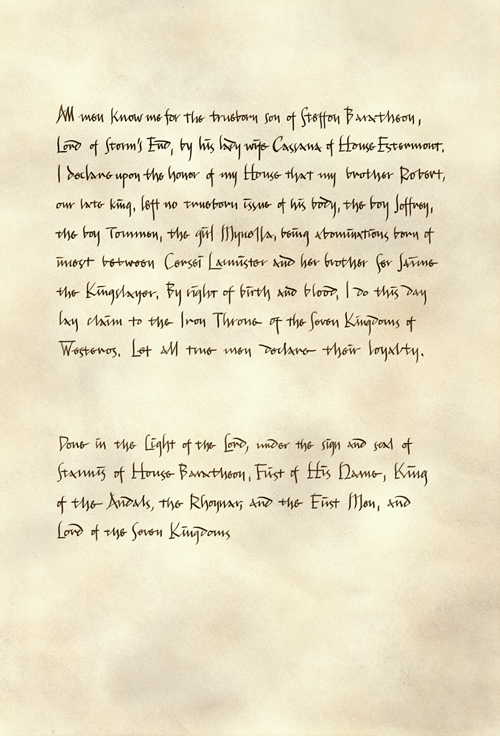 All men know me for the trueborn son of Steffon Baratheon,
Lord of Storm's End, by his lady wife Cassana of House Estermont.
I declare upon the honor of my House that my brother Robert,
our late king, left no trueborn issue of his body, the boy Joffrey,
the boy Tommen, the girl Myrcella, being abominations born of
incest between Cersei Lannister and her brother Ser Jaime
the Kingslayer. By right of birth and blood, I do this day
lay claim to the Iron Throne of the Seven Kingdoms of
Westeros. Let all true men declare their loyalty.
Done in the Light of the Lord, under the sign and seal of
Stannis of House Baratheon, First of His Name, King
of the Andals, the Rhoynar, and the First Men, and
Lord of the Seven Kingdoms